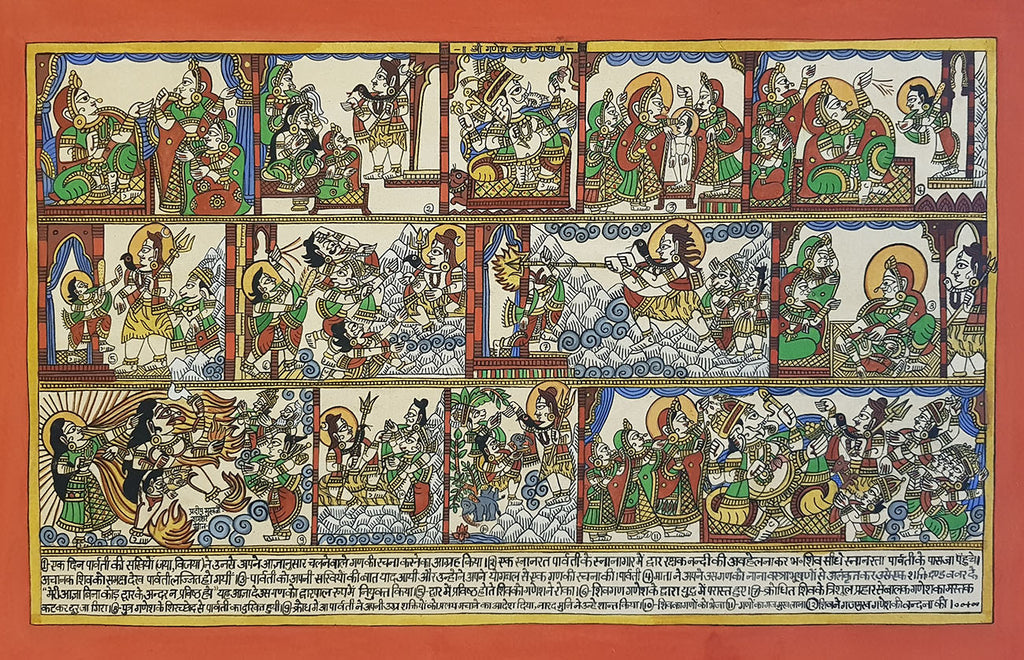 ॥ श्री गणेश जन्म गाथा ॥
① एक दिन पार्वती की सखियों (जया, विजया) ने उनसे अपने आज्ञानुसार चलनेवाले गण की रचना करने का आग्रह किया। ② एक स्नानरत पार्वती के स्नानागार में द्वार रक्षक नन्दी की अवहेलना कर भ. शिव सीधे स्नानरता पार्वती के पास जा पहुंचे।
अचानक शिव को समक्ष देख पार्वती लज्जित हो गयी। ③ पार्वती को अपनी सखियों की बात याद आयी और उन्होंने अपने योगबल से एक गण की रचना की। पार्वती ④ माता ने अपने उस गण को नाना वस्त्राभूषणों से अलंकृत कर उसे एक शक्ति दण्ड
"मेरी आज्ञा बिना कोई द्वार के अन्दर न प्रविष्ठ हो" यह आज्ञा दे उस गण को द्वारपाल रूप में नियुक्त किया। ⑤ द्वार में प्रविष्ठ होते शिव को गणेश ने रोका। ⑥ शिवगण गणेश के द्वारा युद्ध में परास्त हुए। ⑦ क्रोधित शिव के त्रिशूल प्रहार से बालक गणेश का मस्तक
कट कर दूर जा गिरा। ⑧ पुत्र गणेश के शिरच्छेद से पार्वती का दुखित हुयी। ⑨ क्रोध में आ पार्वती ने अपनी उग्र शक्तियों को प्रलय मचाने का आदेश दिया, नारद मुनि ने उन्हें शान्त किया। ⑩ शिव का गणों को भेजा ⑪ गणों का गज मुख लाना ⑫ शिव ने गजमुख गणेश की वन्दना की।